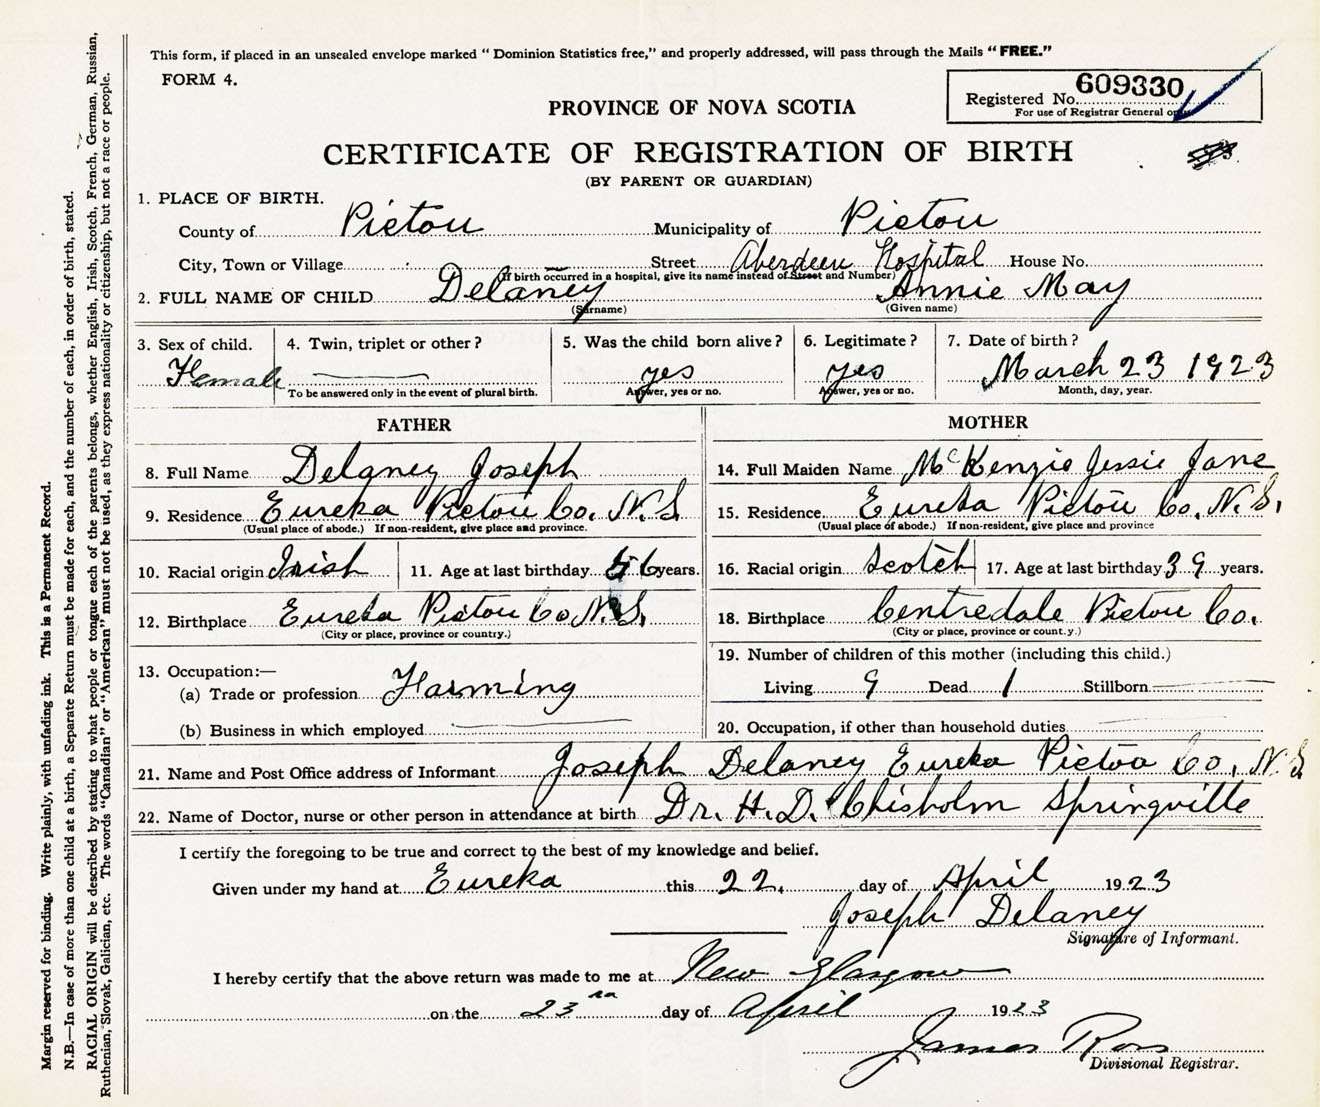 This form, if placed in an unsealed envelope marked " Dominion Statistics free," and properly addressed, will pass through the Mails " FREE."
FORM 4.
Registered No. 609330
For use of Registrar General
PROVINCE OF NOVA SCOTIA
CERTIFICATE OF REGISTRATION OF BIRTH
(BY PARENT OR GUARDIAN)
1. PLACE OF BIRTH.
County of Pictou Municipality of Pictou
City, Town or Village Street Aberdeen Hospital House No.
(If birth occurred in a hospital, give its name instead of Street and Number)
2. FULL NAME OF CHILD Delaney Annie May
(Surname) (Given name)
3. Sex of child. 4. Twin, triplet or other ? 5. Was the child born alive ? 6. Legitimate ? 7. Date of birth ?
Female yes yes March 23 1923
To be answered only in the event of plural birth. Answer, yes or no. Answer, yes or no. Month, day, year.
FATHER MOTHER
8. Full Name Delaney Joseph 14. Full Maiden Name McKenzie Jessie Jane
9. Residence Eureka Pictou Co. N.S 15. Residence Eureka Pictou Co, N.S.
(Usual place of abode.) If non-resident, give place and province. (Usual place of abode.) If non-resident, give place and province
10. Racial origin Irish 11. Age at last birthday 56 years. 16. Racial origin Scotch 17. Age at last birthday 39 years.
12. Birthplace Eureka Pictou Co N.S. 18. Birthplace Centredale Pictou Co.
(City or place, province or country.) (City or place, province or count.y.)
13. Occupation:— 19. Number of children of this mother (including this child.)
(a) Trade or profession Farming Living 9 Dead 1 Stillborn
(b) Business in which employed 20. Occupation, if other than household duties
21. Name and Post Office address of Informant Joseph Delaney Eureka Pictou Co. N.S
22. Name of Doctor, nurse or other person in attendance at birth Dr. H.D. Chisholm Springville
I certify the foregoing to be true and correct to the best of my knowledge and belief.
Given under my hand at Eureka this 22. day of April 1923
Joseph Delaney
Signature of Informant.
I hereby certify that the above return was made to me at New Glasgow
on the 23rd day of April 1923
James Ross
Divisional Registrar.
Margin reserved for binding. Write plainly, with unfading ink. This is a Permanent Record.
N.B.—In case of more than one child at a birth, a Separate Return must be made for each, and the number of each, in order of birth, stated.
RACIAL ORIGIN will be described by stating to what people or tongue each of the parents belongs, whether English, Irish, Scotch, French, German, Russian,
Ruthenian, Slovak, Galician, etc. The words "Canadian" or "American" must not be used, as they express nationality or citizenship, but not a race or people.